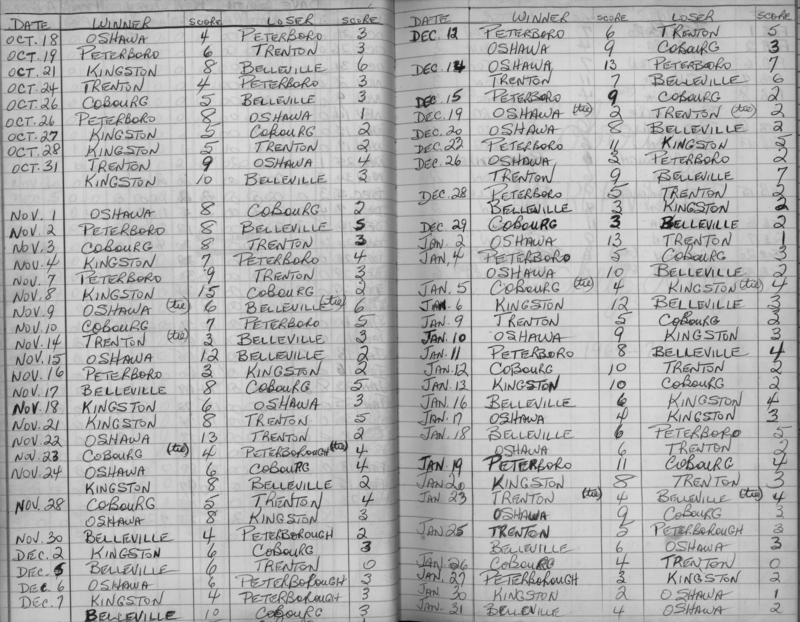 DATE WINNER SCORE LOSER SCORE
OCT. 18 OSHAWA 4 PETERBORO 3
OCT. 19 PETERBORO 6 TRENTON 3
OCT. 21 KINGSTON 8 BELLEVILLE 6
OCT. 24 TRENTON 4 PETERBORO 3
OCT. 26 COBOURG 5 BELLEVILLE 3
OCT. 26 PETERBORO 8 OSHAWA 1
OCT. 27 KINGSTON 5 COBOURG 2
OCT. 28 KINGSTON 5 TRENTON 2
OCT. 31 TRENTON 9 OSHAWA 4
KINGSTON 10 BELLEVILLE 3
NOV. 1 OSHAWA 8 COBOURG 2
NOV. 2 PETERBORO 8 BELLEVILLE 5
NOV. 3 COBOURG 8 TRENTON 3
NOV. 4 KINGSTON 7 PETERBORO 4
NOV. 7 PETERBORO 9 TRENTON 3
NOV. 8 KINGSTON 15 COBOURG 2
NOV. 9 OSHAWA (tie) 6 BELLEVILLE (tie) 6
NOV. 10 COBOURG 7 PETERBORO 5
NOV. 14 TRENTON (tie) 3 BELLEVILLE 3
NOV. 15 OSHAWA 12 BELLEVILLE 2
NOV. 16 PETERBORO 3 KINGSTON 2
NOV. 17 BELLEVILLE 8 COBOURG 5
NOV. 18 KINGSTON 6 OSHAWA 3
NOV. 21 KINGSTON 8 TRENTON 5
NOV. 22 OSHAWA 13 TRENTON 2
NOV. 23 COBOURG (tie) 4 PETERBOROUGH (tie) 4
NOV. 24 OSHAWA 6 COBOURG 4
KINGSTON 8 BELLEVILLE 2
NOV. 28 COBOURG 5 TRENTON 4
OSHAWA 8 KINGSTON 3
NOV. 30 BELLEVILLE 4 PETERBOROUGH 2
DEC. 2 KINGSTON 6 COBOURG 3
DEC. 5 BELLEVILLE 6 TRENTON 0
DEC 6 OSHAWA 6 PETERBOROUGH 3
DEC. 7 KINGSTON 4 PETERBOROUGH 3
BELLEVILLE 10 COBOURG 3
DATE WINNER SCORE LOSER SCORE
DEC. 12 PETERBORO 6 TRENTON 5
OSHAWA 9 COBOURG 3
DEC. 14 OSHAWA 13 PETERBORO 7
TRENTON 7 BELLEVILLE 6
DEC. 15 PETERBORO 9 COBOURG 2
DEC. 19 OSHAWA (tie) 2 TRENTON (tie) 2
DEC. 20 OSHAWA 8 BELLEVILLE 2
DEC. 22 PETERBORO 11 KINGSTON 5
DEC. 26 OSHAWA 3 PETERBORO 2
TRENTON 9 BELLEVILLE 7
DEC. 28 PETERBORO 5 TRENTON 2
BELLEVILLE 3 KINGSTON 2
DEC. 29 COBOURG 3 BELLEVILLE 2
JAN. 2 OSHAWA 13 TRENTON 1
JAN. 4 PETERBORO 5 COBOURG 3
OSHAWA 10 BELLEVILLE 2
JAN. 5 COBOURG (tie) 4 KINGSTON (tie) 4
JAN. 6 KINGSTON 12 BELLEVILLE 3
JAN. 9 TRENTON 5 COBOURG 3
JAN. 10 OSHAWA 9 KINGSTON 3
JAN. 11 PETERBORO 8 BELLEVILLE 4
JAN. 12 COBOURG 10 TRENTON 2
JAN. 13 KINGSTON 10 COBOURG 2
JAN. 16 BELLEVILLE 6 KINGSTON 4
JAN. 17 OSHAWA 4 KINGSTON 3
JAN. 18 BELLEVILLE 6 PETERBORO 5
OSHAWA 6 TRENTON 2
JAN. 19 PETERBORO 11 COBOURG 4
JAN. 20 KINGSTON 8 TRENTON 3
JAN. 23 TRENTON (tie) 4 BELLEVILLE (tie) 4
OSHAWA 9 COBOURG 3
JAN. 25 TRENTON 5 PETERBOROUGH 3
BELLEVILLE 6 OSHAWA 3
JAN. 26 COBOURG 4 TRENTON 0
JAN. 27 PETERBOROUGH 3 KINGSTON 2
JAN. 30 KINGSTON 2 OSHAWA 1
JAN. 31 BELLEVILLE 4 OSHAWA 2